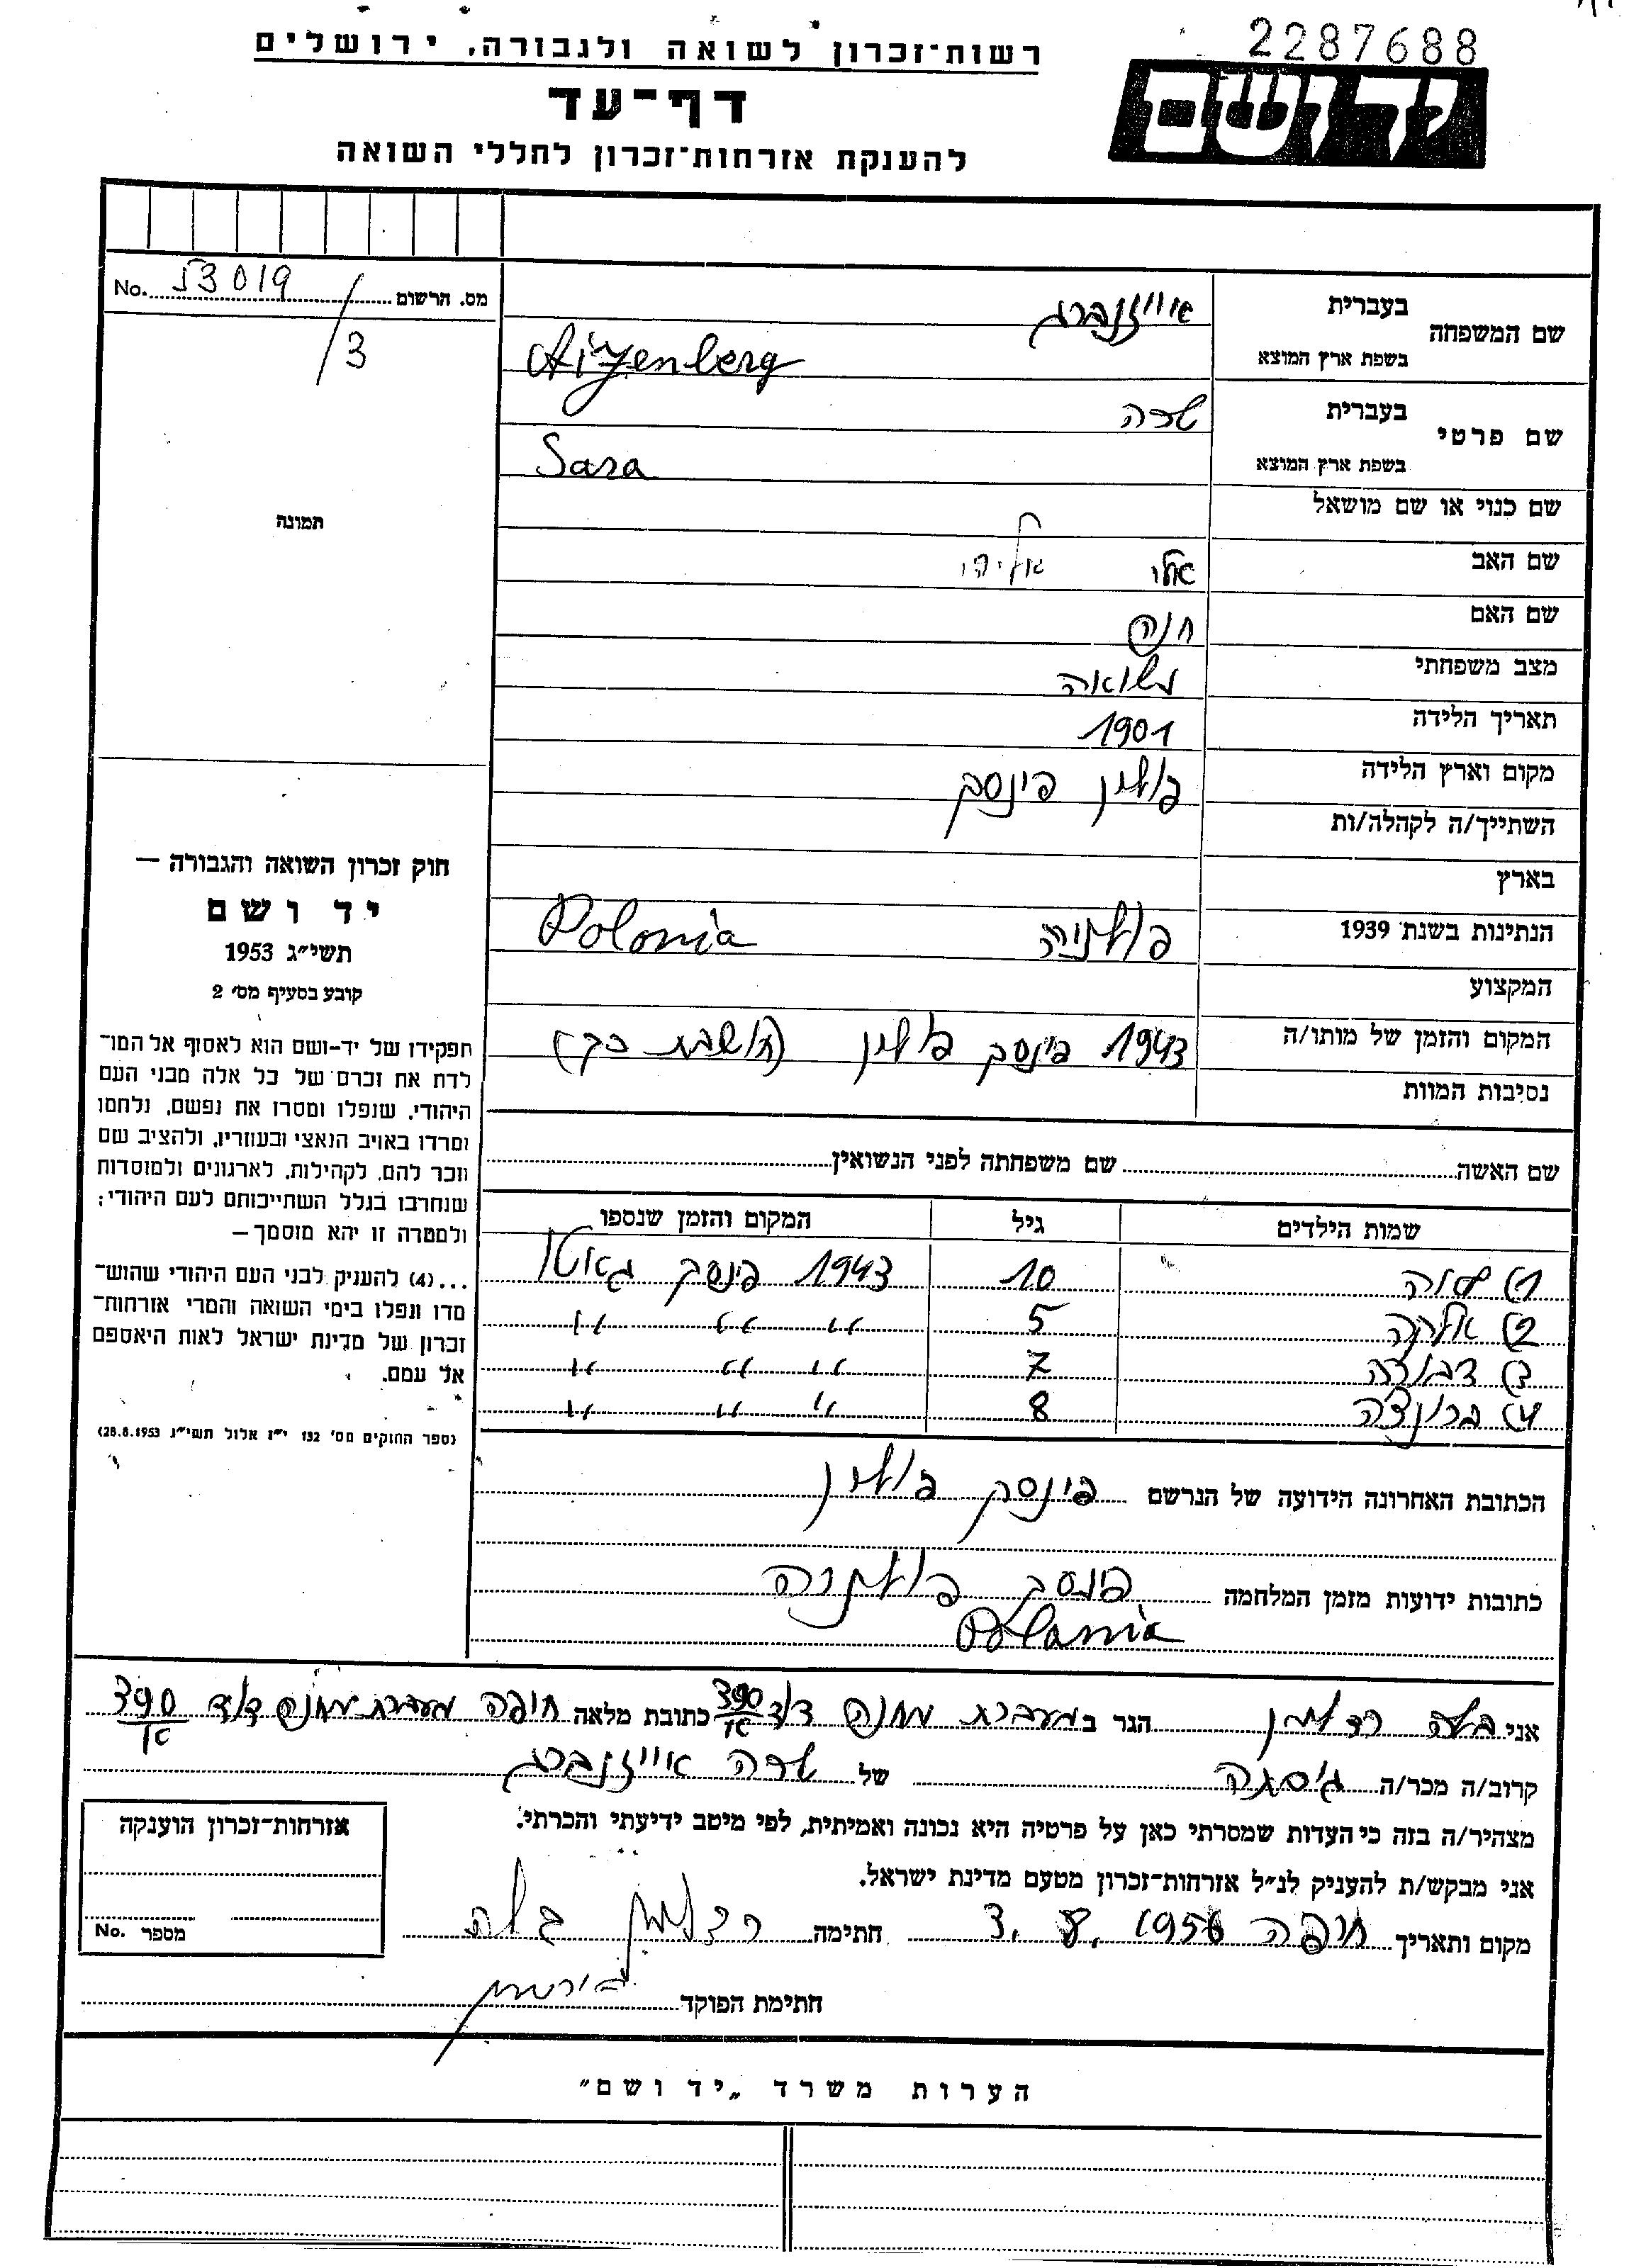 2287688
רשות־זכרון לשואה ולגבורה, ירושלים
יד ושם
דף־עד
להענקת אזרחות־זכרון לחללי השואה
מס. הרשום 53019 No.
/3
תמונה
שם המשפחה
בעברית אייזנברג
בשפת ארץ המוצא Aizenberg
שם פרטי
בעברית שרה
בשפת ארץ המוצא Sara
שם כנוי או שם מושאל
שם האב אלי אליהו
שם האם חנה
מצב משפחתי נשואה
תאריך הלידה 1901
מקום וארץ הלידה פולין פינסק
השתייך/ה לקהלה/ות
בארץ
הנתינות בשנת 1939 פולניה Polonia
המקצוע
המקום והזמן של מותו/ה 1943 פינסק פולין (חושבת כך)
נסיבות המוות
שם האשה שם משפחתה לפני הנשואין
שמות הילדים גיל המקום והזמן שנספו
(1 10 1943 פינסק גאטו
(2 5 " " "
(3 דבורה 7 " " "
(4 8 " " "
חוק זכרון השואה והגבורה —
יד ושם
תשי״ג 1953
קובע בסעיף מס׳ 2
תפקידו של יד-ושם הוא לאסוף אל המו־
לדת את זכרם של כל אלה מבני העם
היהודי, שנפלו ומסרו את נפשם, נלחמו
ומרדו באויב הנאצי ובעוזריו, ולהציב שם
וזכר להם, לקהילות, לארגונים ולמוסדות
שנחרבו בגלל השתייכותם לעם היהודי;
ולמטרה זו יהא מוסמך —
...(4) להעניק לבני העם היהודי שהוש־
מדו ונפלו בימי השואה והמרי אזרחות־
זכרון של מדינת ישראל לאות היאספם
אל עמם.
(ספר החוקים מס׳ 132 י״ז אלול תשי״ג 28.8.1953)
הכתובת האחרונה הידועה של הנרשם פינסק פולין
כתובות ידועות מזמן המלחמה פינסק פולניה
Polonia
אני בלה הגר ב מעברת מחנה דוד 390/א כתובת מלאה חיפה מעברת מחנה דוד 390/א
קרוב/ה מכר/ה גיסתה של שרה אייזנברג
מצהיר/ה בזה כי העדות שמסרתי כאן על פרטיה היא נכונה ואמיתית, לפי מיטב ידיעתי והכרתי.
אני מבקש/ת להעניק לנ״ל אזרחות־זכרון מטעם מדינת ישראל.
מקום ותאריך חיפה 3.8.1956 חתימה בלה
חתימת הפוקד
אזרחות־זכרון הוענקה
מספר No.
הערות משרד „יד ושם״